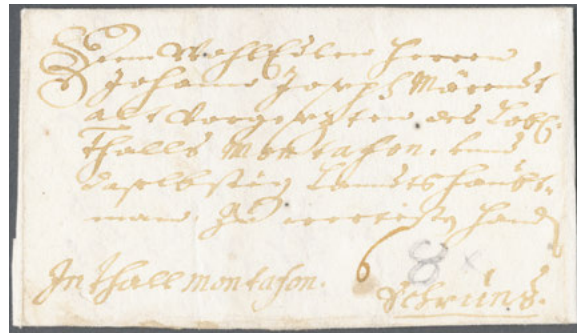 Dem WohlEdlen Herren
Johann Joseph
alt Vorgesezten des Lobl:
Thalls Montafon. und
daselbstig Landtshaubt-
man Zu Hand
6 8
In Thall montafon.
Schruns.